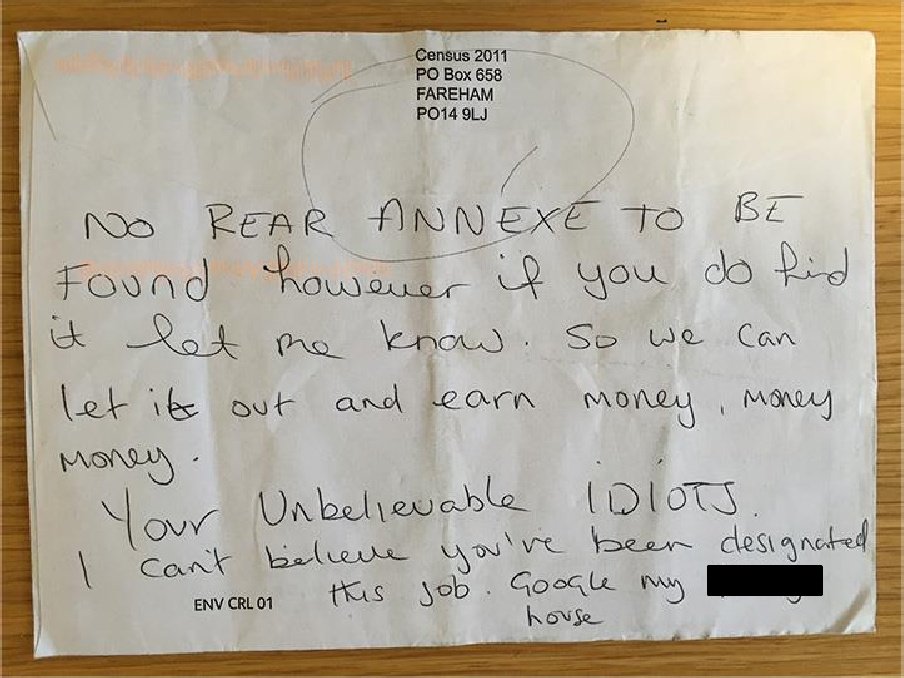 Census 2011
PO Box 658
FAREHAM
PO14 9LJ
NO REAR ANNEXE TO BE
FOUND however if you do find
it let me know. So we can
let it out and earn money, money
money.
Your Unbelievable IDIOTS.
I can't believe you've been designated
this job. Google my
house
ENV CRL 01